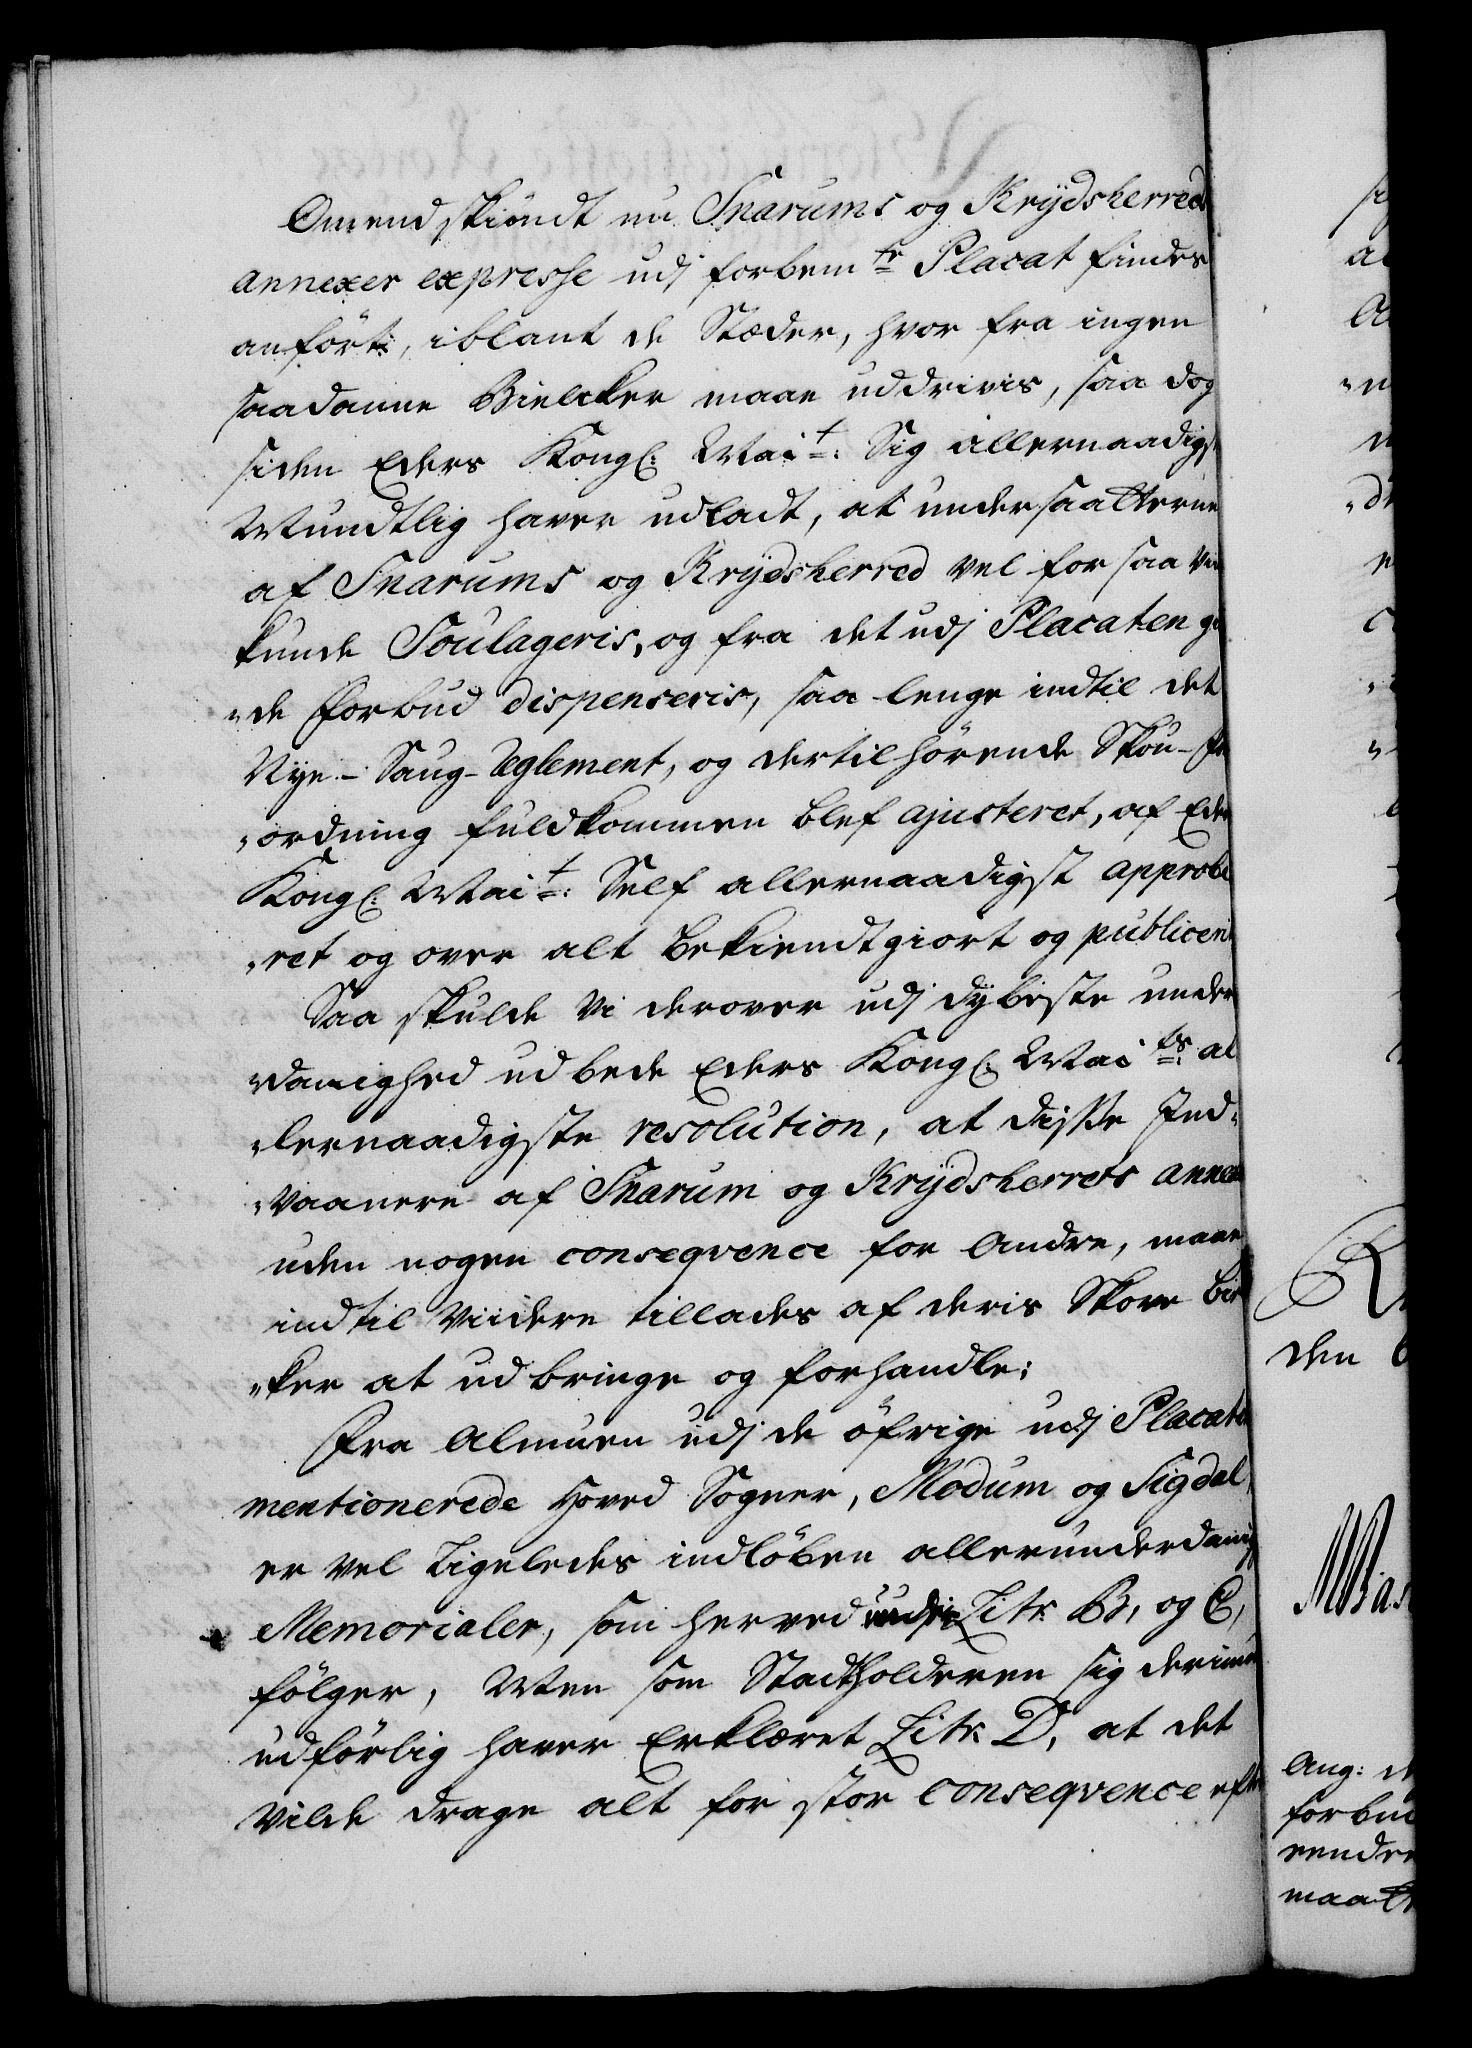 Omendskiöndt nu Snarums og Krydsherred
annexer expresse udj forbemte Placat findes
anförte, iblant de Stæder, hvor fra ingen
saadanne Bielcker maae uddrivis, saa dog
siden Eders Kongl: Mait: Sig allernaadigst
Mundtlig haver udladt, at undersaatterne
af Snarums og Krydsherred vel for saa vit
kunde Soulageris, og fra det udj Placaten
de forbud dispenseris, saa lenge indtil det
Nye-Saug-Reglement, og dertilhörende Skou-
ordning fuldkommen blef ajusteret, af Eders
Kongl: Mait: Self allernaadigst approbe
„ret og over alt bekiendtgiort og publicerit
Saa skulde Vi derover udj dybeste under
„danighed udbede Eders Kongl: Maits: al
„lernaadigste resolution, at disse Ind„
„vaanere af Snarum og Krydsherrets annexer
uden nogen conseqvence for Andre, maae
indtil Viidere tillades af deris Skove biel
„ker at udbringe og forhandle;
Fra Almuen udj de öfrige udj Placaten
mentionerede Hoved Sogner, Modum og Sigdal,
er vel Ligeledes indlöben allerunderdanig
Memorialer, som herved under Litr: B, og C,
fölger, Men som Stadtholderen sig derimod
udförlig haver Erklæret Litr: D, at det
Vilde drage alt for stor conseqvence efter
den
Ang:
forbud